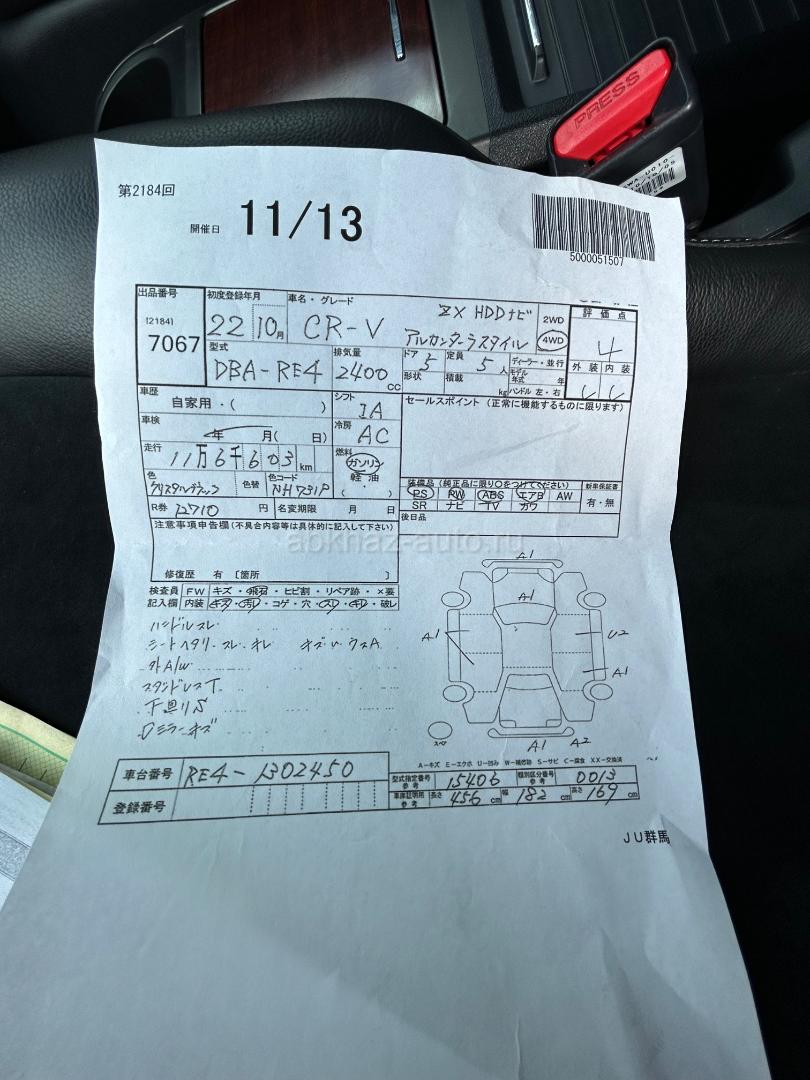 PRESS
第2184回
開催日 11/13
5000051507
出品番号 初度登録年月 車名・グレード 評価点
(2184) 7067 22 10月 CR-V ZX HDDナビ 2WD 4WD 4
アルカンターラスタイル
型式 排気量 ドア 定員 ディーラー・並行 外装 内装
DBA-RE4 2400cc 5 5人 モデル年式 年
形状 積載 kg ハンドル 左・右
車歴 シフト セールスポイント (正常に機能するものに限ります)
自家用・( ) IA
車検 冷房
年 月( 日) AC
走行 燃料
11万6千603km ガソリン
色 色替 色コード 軽油・( )
クリスタルブラック NH731P
装備品(純正品に限り○をつけてください) 新車保証書
PS PW ABS エアB AW 有・無
SR ナビ TV カワ
R券 12710 円 名変期限 月 日 後日品
注意事項申告欄(不具合内容等は具体的に記入して下さい)
abkhaz-auto.ru
修復歴 有 [箇所 ]
検査員 FW キズ・飛石・ヒビ割・リペア跡・×要
記入欄 内装 キズ・汚レ・コゲ・穴・スレ・キレ・破レ
ハンドルスレ
シートヘタリ・スレ・オレ キズ・U・ウスA
外A/W
下廻りS
ミラーキズ
A1
A1
A1
U2
A1
A1 A2
スペア
A-キズ E-エクボ U-凹み W-補修跡 S-サビ C-腐食 XX-交換済
車台番号 RE4-1302450
登録番号
型式指定番号 参考 15406 類別区分番号 参考 0013
車庫証明用 参考 長さ 456 cm 幅 182 cm 高さ 169 cm
JU群馬